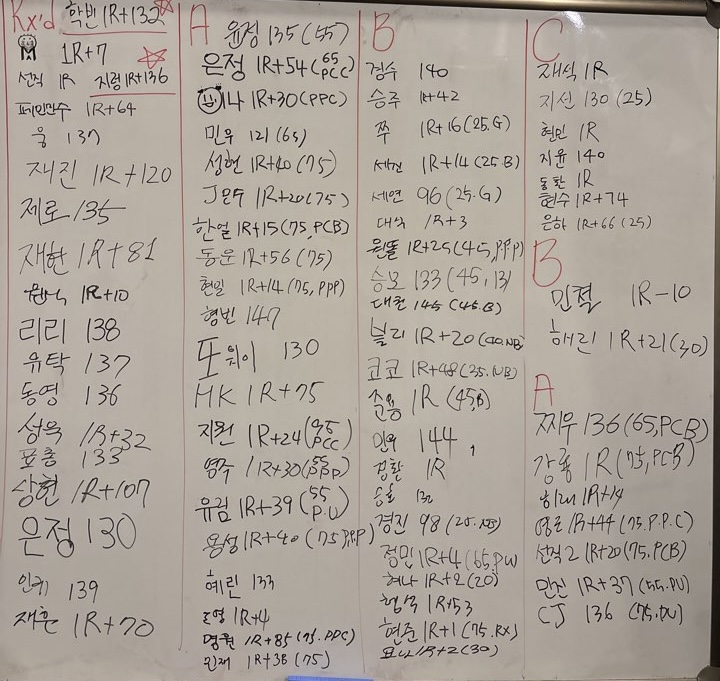 Rx'd
학빈 1R+132
1R+7
선적 1R
지령 1R+136
1R+64
웅 137
재진 1R+120
제로 135
재현 1R+81
1R+10
리리 138
유탁 137
동영 136
성욱 1R+32
표총 133
상현 1R+107
은정 130
인귀 139
재훈 1R+70
A
윤정 135 (55)
은정 1R+54 (65 PCC)
나 1R+30 (PPC)
민우 121 (65)
성현 1R+40 (75)
J문수 1R+20 (75)
한얼 1R+15 (75, PCB)
동운 1R+56 (75)
현일 1R+14 (75, PPP)
형빈 147
또위이 130
HK 1R+75
지원 1R+24 (95 PCC)
영주 1R+30 (55 PPP)
유림 1R+39 (55 P.U)
용성 1R+40 (75 P.P.P)
혜린 133
1R+4
명원 1R+85 (75. PPC)
민재 1R+38 (75)
B
경수 140
승주 1R+42
쭈 1R+16 (25.G)
세진 1R+14 (25.B)
세연 96 (25.G)
대식 1R+3
원돌 1R+25 (45, PPP)
승모 133 (45, 13)
대천 145 (45.B)
블리 1R+20 (NB)
코코 1R+48 (35.NB)
준용 1R (45,B)
민우 144
정환 1R
승호 132
경진 98 (25.NB)
정민 1R+4 (65,PU)
혜나 1R+2 (20)
형석 1R+53
현준 1R+1 (75.RX)
요나 1R+2 (30)
C
재식 1R
지선 130 (25)
현민 1R
지윤 140
동환 1R
현수 1R+74
은하 1R+66 (25)
B
민철 1R-10
해린 1R+21 (30)
A
찌우 136 (65, PCB)
강룡 1R (75, PCB)
1R+14
영로 1R+44 (75.P.P.C)
선적2 1R+20 (75.PCB)
민진 1R+37 (55.PU)
CJ 136 (75.PU)